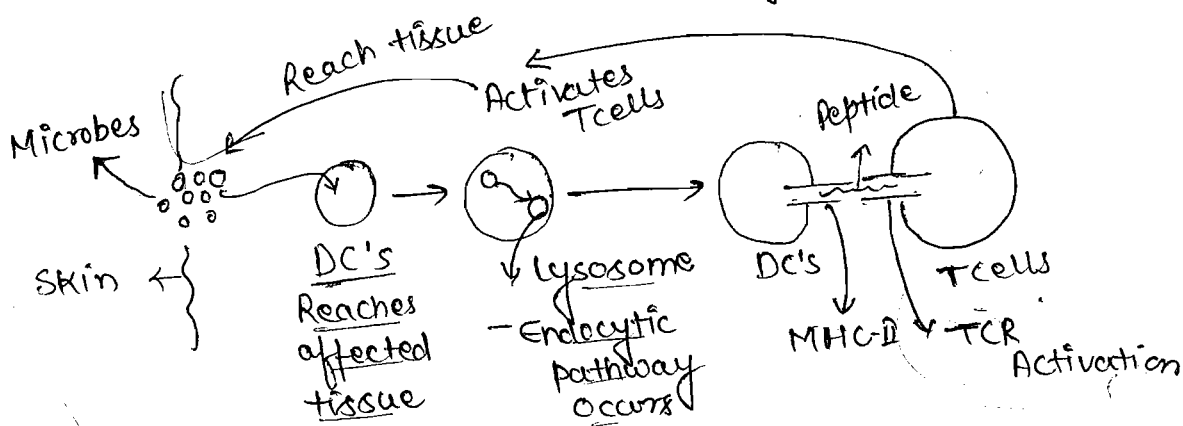 Reach tissue
Activates
Tcells
Peptide
Microbes
Skin
DC's
Reaches
affected
tissue
Lysosome
- Endocytic
pathway
occurs
DC's
MHC-II
Tcells
TCR
Activation